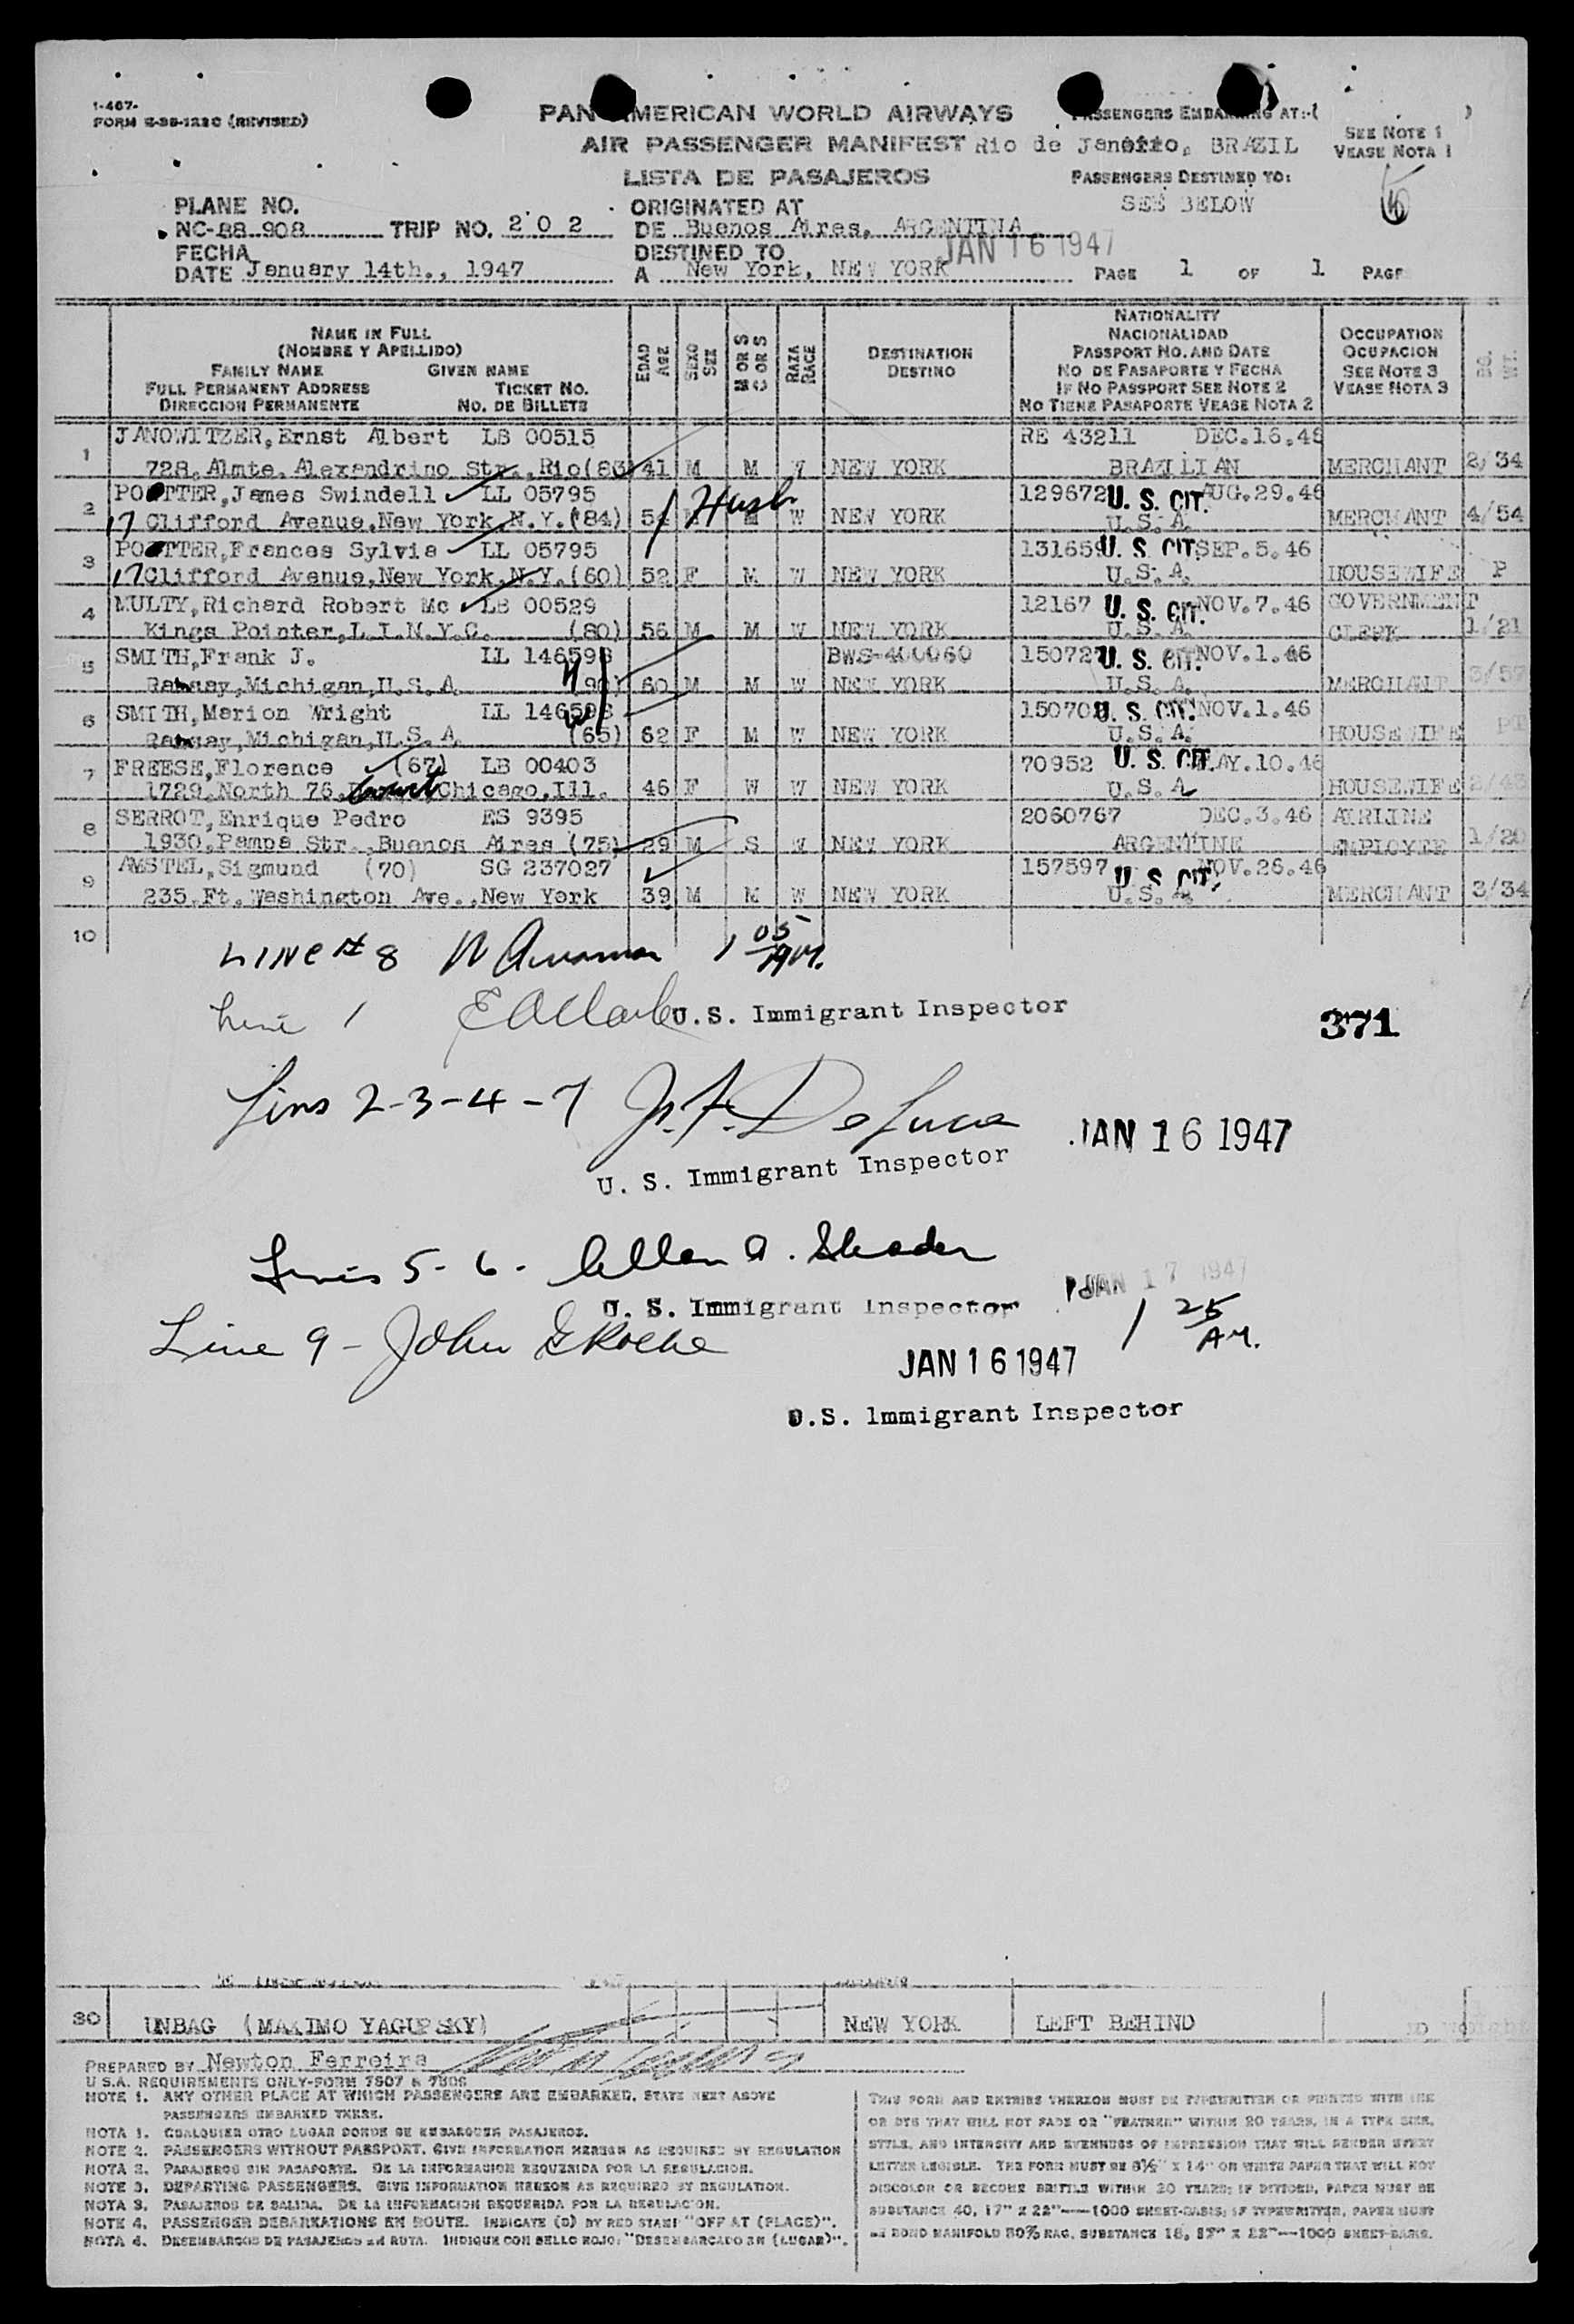 1-467-
FORM (REVISED)
PAN AMERICAN WORLD AIRWAYS
AIR PASSENGER MANIFEST
LISTA DE PASAJEROS
PASSENGERS EMBARKING AT:-( )
Rio de Janeiro, BRAZIL
SEE NOTE 1
VEASE NOTA 1
PASSENGERS DESTINED TO:
SEE BELOW
PLANE NO.
NC-88 908 TRIP NO. 2 0 2
FECHA
DATE January 14th., 1947
ORIGINATED AT
DE Buenos Aires, ARGENTINA
JAN 16 1947
DESTINED TO
A New York, NEW YORK
PAGE 1 OF 1 PAGE
NAME IN FULL
(NOMBRE Y APELLIDO)
FAMILY NAME GIVEN NAME
FULL PERMANENT ADDRESS TICKET NO.
DIRECCION PERMANENTE NO. DE BILLETE
EDAD AGE
SEXO SEX
M OR S C OR S
RAZA RACE
DESTINATION
DESTINO
NATIONALITY
NACIONALIDAD
PASSPORT NO. AND DATE
NO DE PASAPORTE Y FECHA
IF NO PASSPORT SEE NOTE 2
NO TIENE PASAPORTE VEASE NOTA 2
OCCUPATION
OCUPACION
SEE NOTE 3
VEASE NOTA 3
1 JANOWITZER, Ernst Albert LB 00515 RE 43211 DEC.16.46
728, Almte. Alexandrino Str., Rio (83) 41 M M W NEW YORK BRAZILIAN MERCHANT 2/34
2 POTTER, James Swindell LL 05795 129672 U. S. CIT. AUG.29.46
17 Clifford Avenue, New York, N.Y. (84) 54 Husb M W NEW YORK U.S.A. MERCHANT 4/54
3 POTTER, Frances Sylvia LL 05795 131659 U. S. CIT. SEP.5.46
17 Clifford Avenue, New York, N.Y. (60) 52 F M W NEW YORK U.S.A. HOUSEWIFE P
4 MULTY, Richard Robert Mc LB 00529 12167 U. S. CIT. NOV.7.46 GOVERNMENT
Kings Pointer, L.I.N.Y.C. (80) 56 M M W NEW YORK U.S.A. CLERK 1/21
5 SMITH, Frank J. LL 146598 BWS-400060 150727 U. S. CIT. NOV.1.46
Ramsay, Michigan, U.S.A. H (90) 60 M M W NEW YORK U.S.A. MERCHANT 3/57
6 SMITH, Marion Wright LL 146598 150708 U. S. CIT. NOV.1.46
Ramsay, Michigan, U.S.A. W (65) 62 F M W NEW YORK U.S.A. HOUSEWIFE PT
7 FREESE, Florence (67) LB 00403 70952 U. S. CIT. MAY.10.46
1729, North 76, Court Chicago, Ill. 46 F W W NEW YORK U.S.A. HOUSEWIFE
8 SERROT, Enrique Pedro ES 9395 2060767 DEC.3.46 AIRLINE
1930, Pampa Str., Buenos Aires (75) 29 M S W NEW YORK ARGENTINE EMPLOYEE 1/20
9 AMSTEL, Sigmund (70) SG 237027 157597 U. S. CIT. NOV.26.46
235, Ft. Washington Ave., New York 39 M M W NEW YORK U.S.A. MERCHANT 3/34
10
LINE # 8 1 05 AM.
Line 1 U.S. Immigrant Inspector
371
Lines 2-3-4-7 J. F. DeLuca
JAN 16 1947
U. S. Immigrant Inspector
Lines 5-6. Allen A. Sleader
U. S. Immigrant Inspector
JAN 17 1947
1 25 AM.
Line 9 - John E Roche
JAN 16 1947
U.S. Immigrant Inspector
30 UNBAG (MAXIMO YAGUPSKY) NEW YORK LEFT BEHIND
PREPARED BY Newton Ferreira
U.S.A. REQUIREMENTS ONLY-FORM 7507 & 7506
NOTE 1. ANY OTHER PLACE AT WHICH PASSENGERS ARE EMBARKED, STATE NEXT ABOVE
PASSENGERS EMBARKED THERE.
NOTA 1. CUALQUIER OTRO LUGAR DONDE SE EMBARQUEN PASAJEROS.
NOTE 2. PASSENGERS WITHOUT PASSPORT. GIVE INFORMATION HEREON AS REQUIRED BY REGULATION
NOTA 2. PASAJEROS SIN PASAPORTE. DE LA INFORMACION REQUERIDA POR LA REGULACION.
NOTE 3. DEPARTING PASSENGERS. GIVE INFORMATION HEREON AS REQUIRED BY REGULATION.
NOTA 3. PASAJEROS DE SALIDA. DE LA INFORMACION REQUERIDA POR LA REGULACION.
NOTE 4. PASSENGER DEBARKATIONS EN ROUTE. INDICATE (D) BY RED STAMP "OFF AT (PLACE)".
NOTA 4. DESEMBARCOS DE PASAJEROS EN RUTA. INDIQUE CON SELLO ROJO: "DESEMBARCADO EN (LUGAR)".
THIS FORM AND ENTRIES THEREON MUST BE TYPEWRITTEN OR PRINTED WITH INK
OR DYE THAT WILL NOT FADE OR "FEATHER" WITHIN 20 YEARS, IN A TYPE SIZE,
STYLE, AND INTENSITY AND EVENNESS OF IMPRESSION THAT WILL RENDER EVERY
LETTER LEGIBLE. THE FORM MUST BE 8½" X 14" ON WHITE PAPER THAT WILL NOT
DISCOLOR OR BECOME BRITTLE WITHIN 20 YEARS; IF DITTOED, PAPER MUST BE
SUBSTANCE 40, 17" X 22"—1000 SHEET-BASIS; IF TYPEWRITTEN, PAPER MUST
BE BOND MANIFOLD 50% RAG, SUBSTANCE 16, 17" X 22"—1000 SHEET-BASIS.